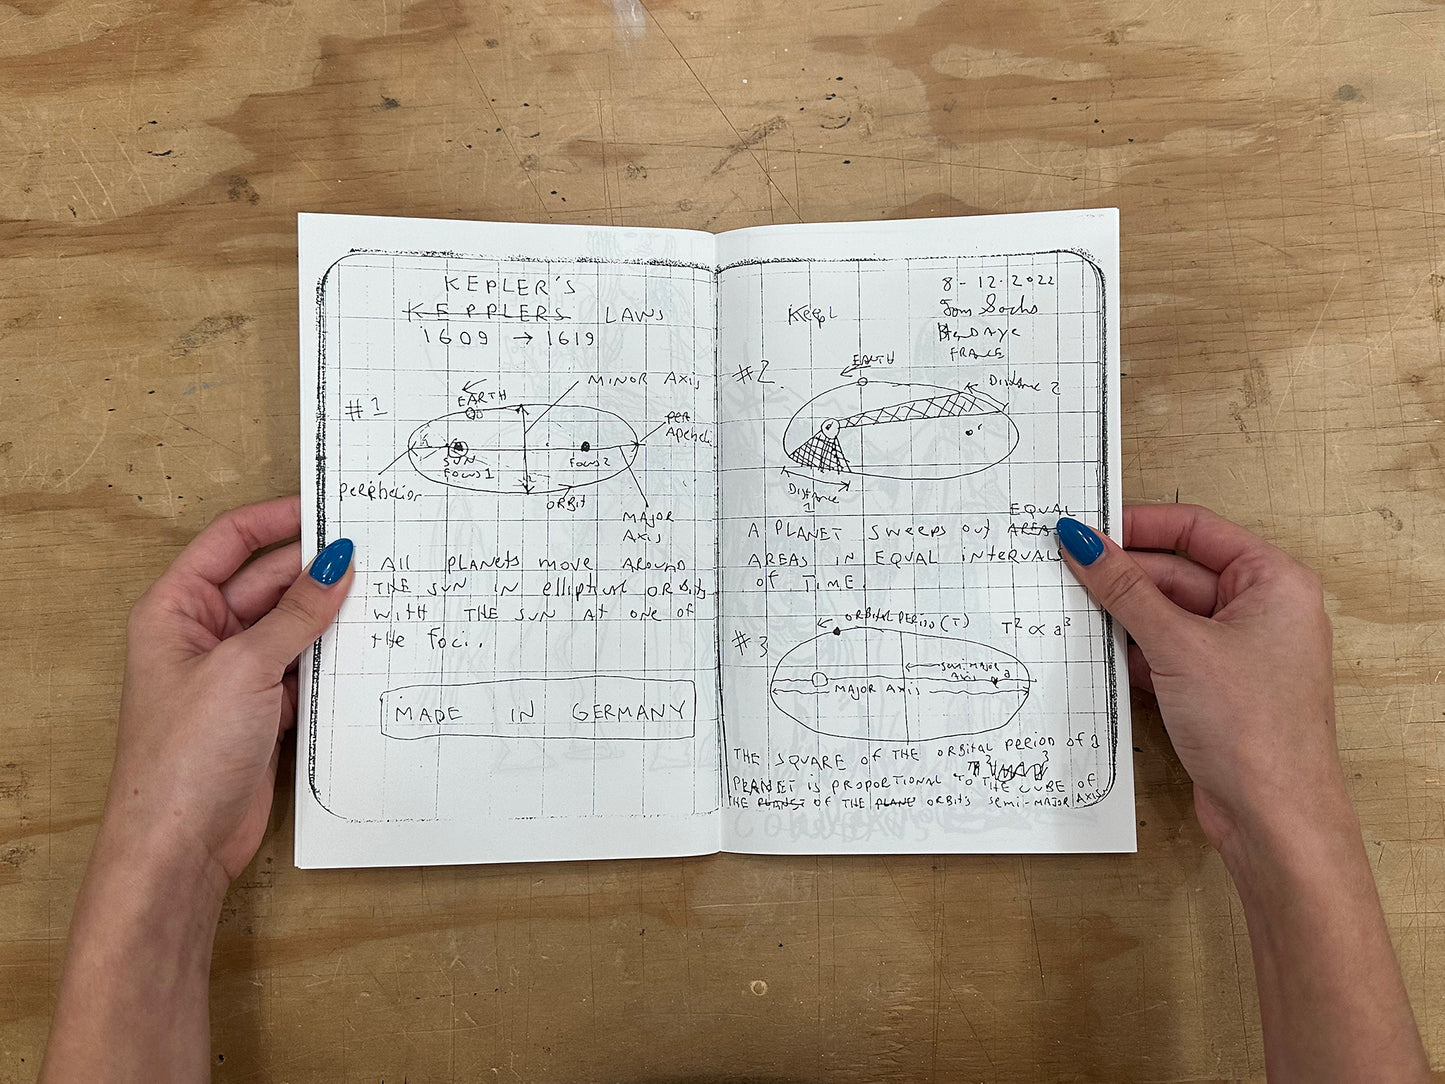 KEPLER'S
KEPPLERS LAWS
1609 → 1619
#1
EARTH
MINOR AXIS
PER
APEHELI
SUN
FOCUS 1
FOCUS 2
PERIPHELION
ORBIT
MAJOR
AXIS
All PLANETS MOVE AROUND
THE SUN IN elliptical ORBITS
WITH THE SUN AT ONE OF
the foci.
MADE IN GERMANY
8-12-2022
Tom Sachs
HENDAYE
FRANCE
KEEPL
#2
EARTH
Distance 2
Distance
1
EQUAL
A PLANET SWEEPS OUT AREAS
AREAS IN EQUAL INTERVALS
OF TIME.
#3
ORBITAL PERIOD (T)
T² ∝ a³
SEMI-MAJOR
AXIS a
MAJOR AXIS
THE SQUARE OF THE ORBITAL PERIOD OF A
PLANET IS PROPORTIONAL TO THE CUBE OF
THE PLANET OF THE PLANE ORBITS SEMI-MAJOR AXIS.